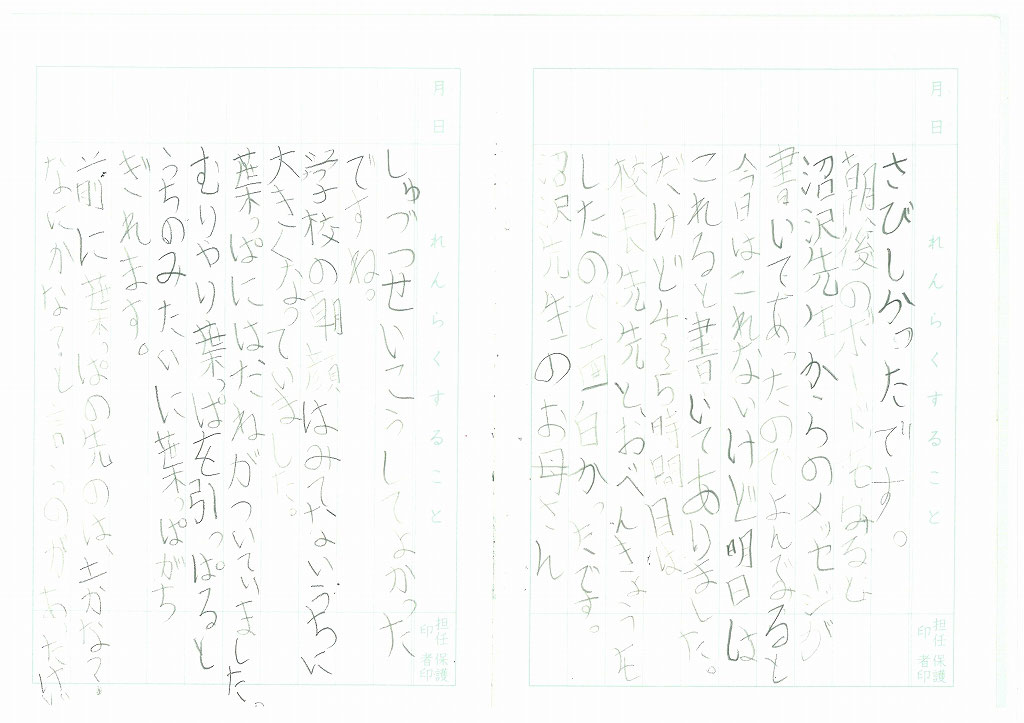 月 日
れんらくすること
担任印 保護者印
さびしかったです。
朝、後のボードをみると
沼沢先生からのメッセージが
書いてあったのでよんでみると
今日はこれないけど明日は
これると書いてありました。
だけど4、5時間目は
校長先先と、おべんきょうを
したので面白かったです。
沼沢先生のお母さん
月 日
れんらくすること
担任印 保護者印
しゅづつせいこうしてよかった
ですね。
学校の朝顔はみてないうちに
大きくなっていました。
葉っぱにはだねがついていました。
むりやり葉っぱを引っぱると
うちのみたいに葉っぱがち
ぎれます。
前に葉っぱの先のは、土かな?
なにかな?と言うのがあったけど